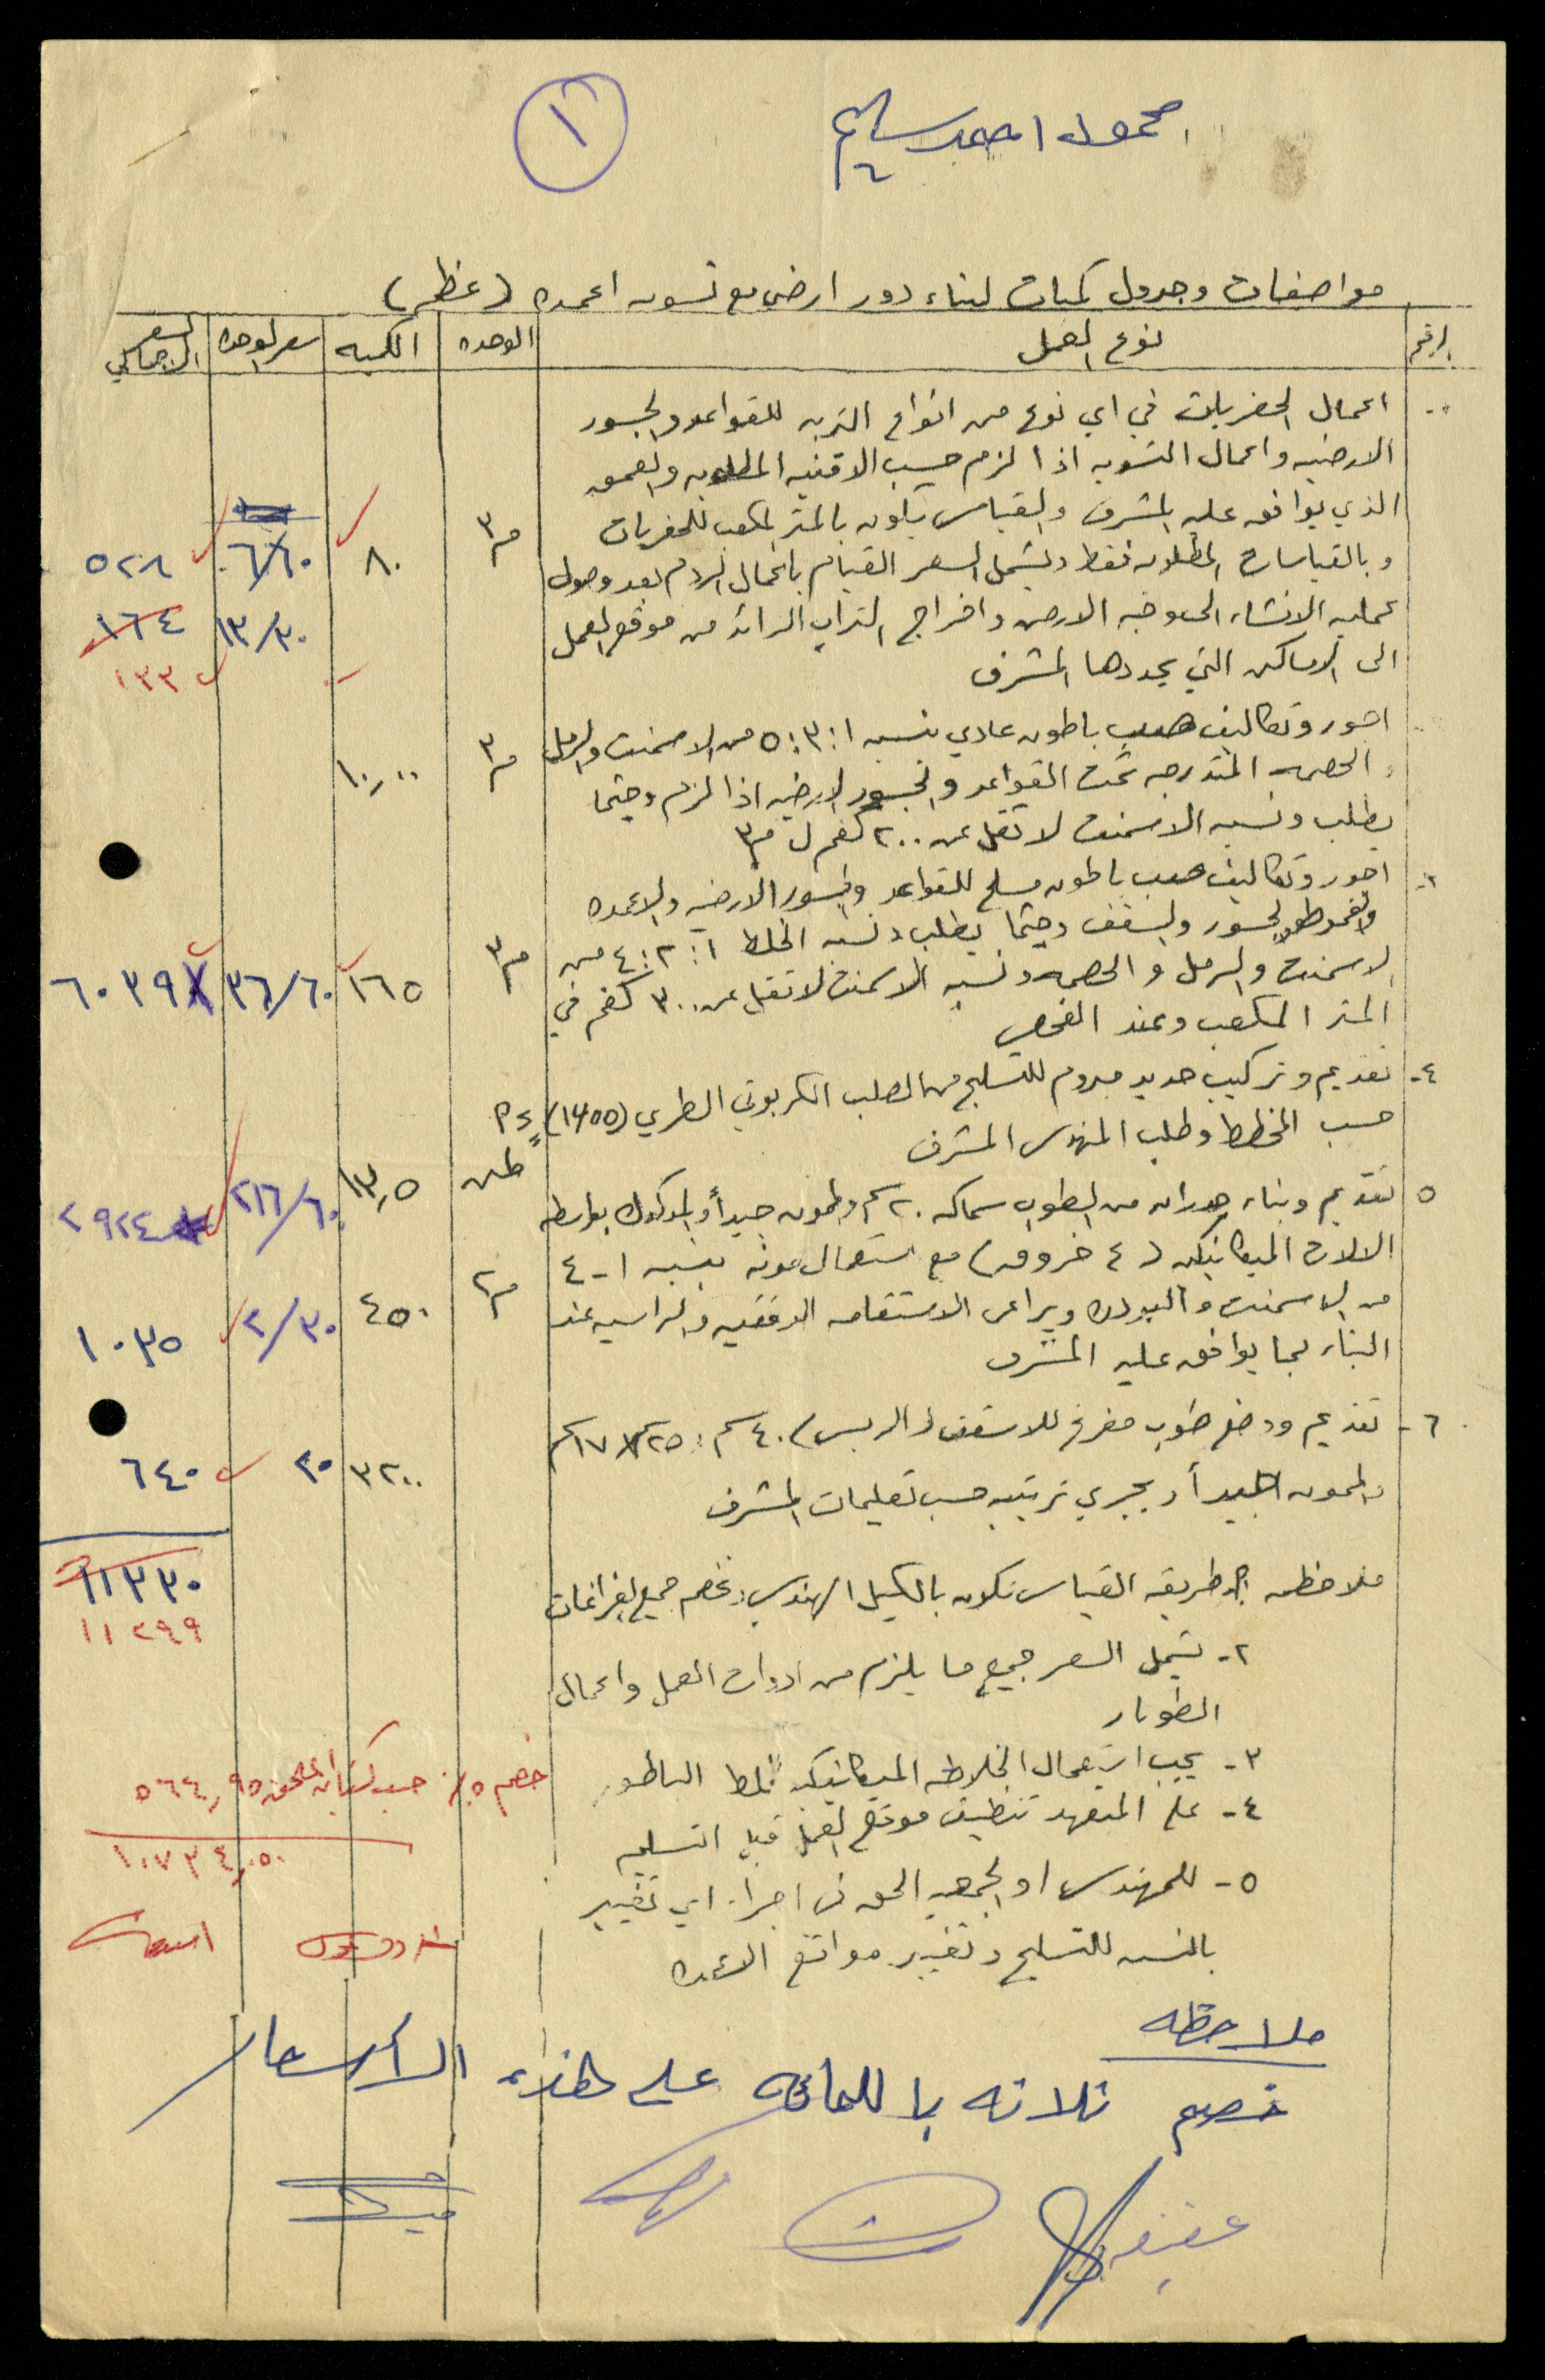 محمود احمد سليم
١
مواصفات وجدول كميات لبناء دور ارضي مع تسويه اعمده (عظم)
الرقم نوع العمل الوحده الكميه سعر الوحده السعر الاجمالي
اعمال الحفريات في اي نوع من انواع التربه للقواعد والجسور
الارضيه واعمال التسويه اذا لزم حسب الاقنيه المطلوبه والعمق
الذي يوافق عليه المشرف والقياس يكون بالمتر المكعب للحفريات م٣ ٨٠ ٦/٦٠ ٥٢٨
وبالقياسات المطلوبه فقط ويشمل السعر القيام باعمال الردم بعد وصول
عمليه الانشاء الى وجه الارض واخراج التراب الزائد من موقع العمل ١٣/٣٠ ١٦٤
الى الاماكن التي يحددها المشرف ١٣٣
اجور وتكاليف صب باطون عادي بنسبه ١:٣:٥ من الاسمنت والرمل
والحصمه المتدرجه تحت القواعد والجسور الارضيه اذا لزم وحيثما م٣ ١٠,٠٠
يطلب ونسبه الاسمنت لا تقل عن ٢٠٠ كغم ل م٣
اجور وتكاليف صب باطون مسلح للقواعد والجسور الارضيه والاعمده
والجسور والسقف وحيثما يطلب ونسبه الخلط ١:٢:٤ من
الاسمنت والرمل والحصمه ونسبه الاسمنت لا تقل عن ٣٠٠ كغم في م٣ ١٦٥ ٣٦/٦٠ ٦٠٣٩
المتر المكعب وعند الفحص
٤- تقديم وتركيب حديد مبروم للتسليح من الصلب الكربوني الطري (١٤٥٥)
حسب المخطط وطلب المهندس المشرف طن ١٣,٥ ٢١٦/٦٠ ٢٩٢٤
٥ تقديم وبناء جدران من الطوب سماكه ٢٠ سم والممون جيداً والمدكوك بواسطه
الالات الميكانيكيه (٤ خروق) مع استعمال مونه بنسبه ١-٤ م٢ ٤٥٠ ٢/٣٠ ١٠٣٥
من الاسمنت و ويراعى الاستقامه الافقيه والراسيه عند
البناء بما يوافق عليه المشرف
٦- تقديم ووضع طوب مفرغ للاسقف (الربس) ٤٠ سم × ٢٥سم × ١٧ سم ٣٢٠٠ ٢٠ ٦٤٠
والممون جيداً ويجري ترتيبه حسب تعليمات المشرف
١١٣٣٠
ملاحظه ١- طريقه القياس تكون بالكيل الهندسي وتخصم جميع الفراغات
١١٢٩٩
٢- يشمل السعر جميع ما يلزم من ادوات العمل واعمال
الطوبار
٣- يجب استعمال الخلاطه الميكانيكيه لخلط الباطون
خصم ٥٪ حسب ٥٦٤,٩٥
٤- على المتعهد تنظيف موقع العمل قبل التسليم
١٠٧٣٤,٠٥٠
٥- للمهندس او الجمعيه الحق في اجراء اي تغيير
بالنسبه للتسليح وتغيير مواقع الاعمده
ملاحظه
خصم ثلاثه بالمائه على هذه الأسعار